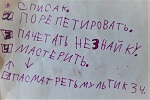 СПИСАК.
ПОРЕПЕТИРОВАТЬ.
ПАЧЕТАТЬ НЕЗНАЙКУ.
МАСТЕРИТЬ.
ПАСМАТРЕТЬ МУЛЬТИК 3 Ч.